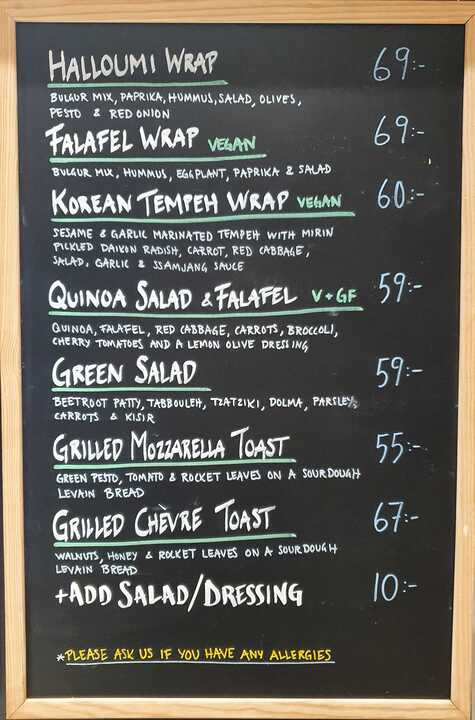 HALLOUMI WRAP 69:-
BULGUR MIX, PAPRIKA, HUMMUS, SALAD, OLIVES,
PESTO & RED ONION
FALAFEL WRAP VEGAN 69:-
BULGUR MIX, HUMMUS, EGGPLANT, PAPRIKA & SALAD
KOREAN TEMPEH WRAP VEGAN 60:-
SESAME & GARLIC MARINATED TEMPEH WITH MIRIN
PICKLED DAIKON RADISH, CARROT, RED CABBAGE,
SALAD, GARLIC & SSAMJANG SAUCE
QUINOA SALAD & FALAFEL V+GF 59:-
QUINOA, FALAFEL, RED CABBAGE, CARROTS, BROCCOLI,
CHERRY TOMATOES AND A LEMON OLIVE DRESSING
GREEN SALAD 59:-
BEETROOT PATTY, TABBOULEH, TZATZIKI, DOLMA, PARSLEY,
CARROTS & KISIR
GRILLED MOZZARELLA TOAST 55:-
GREEN PESTO, TOMATO & ROCKET LEAVES ON A SOURDOUGH
LEVAIN BREAD
GRILLED CHÈVRE TOAST 67:-
WALNUTS, HONEY & ROCKET LEAVES ON A SOURDOUGH
LEVAIN BREAD
+ADD SALAD/DRESSING 10:-
*PLEASE ASK US IF YOU HAVE ANY ALLERGIES